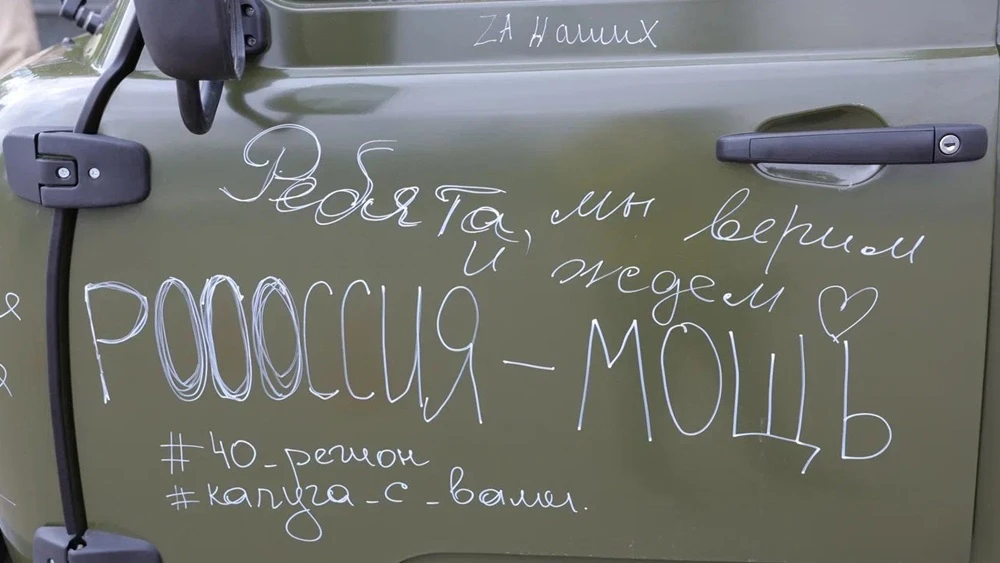 ZA Наших
Ребята, мы верим
и ждем
РОООССИЯ – МОЩЬ
#40_регион
#калуга_с_вами.